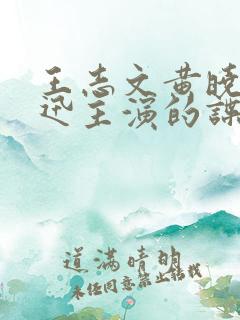 王志文黄晓
迅主演的谍
道满晴明
未经同意禁止转载